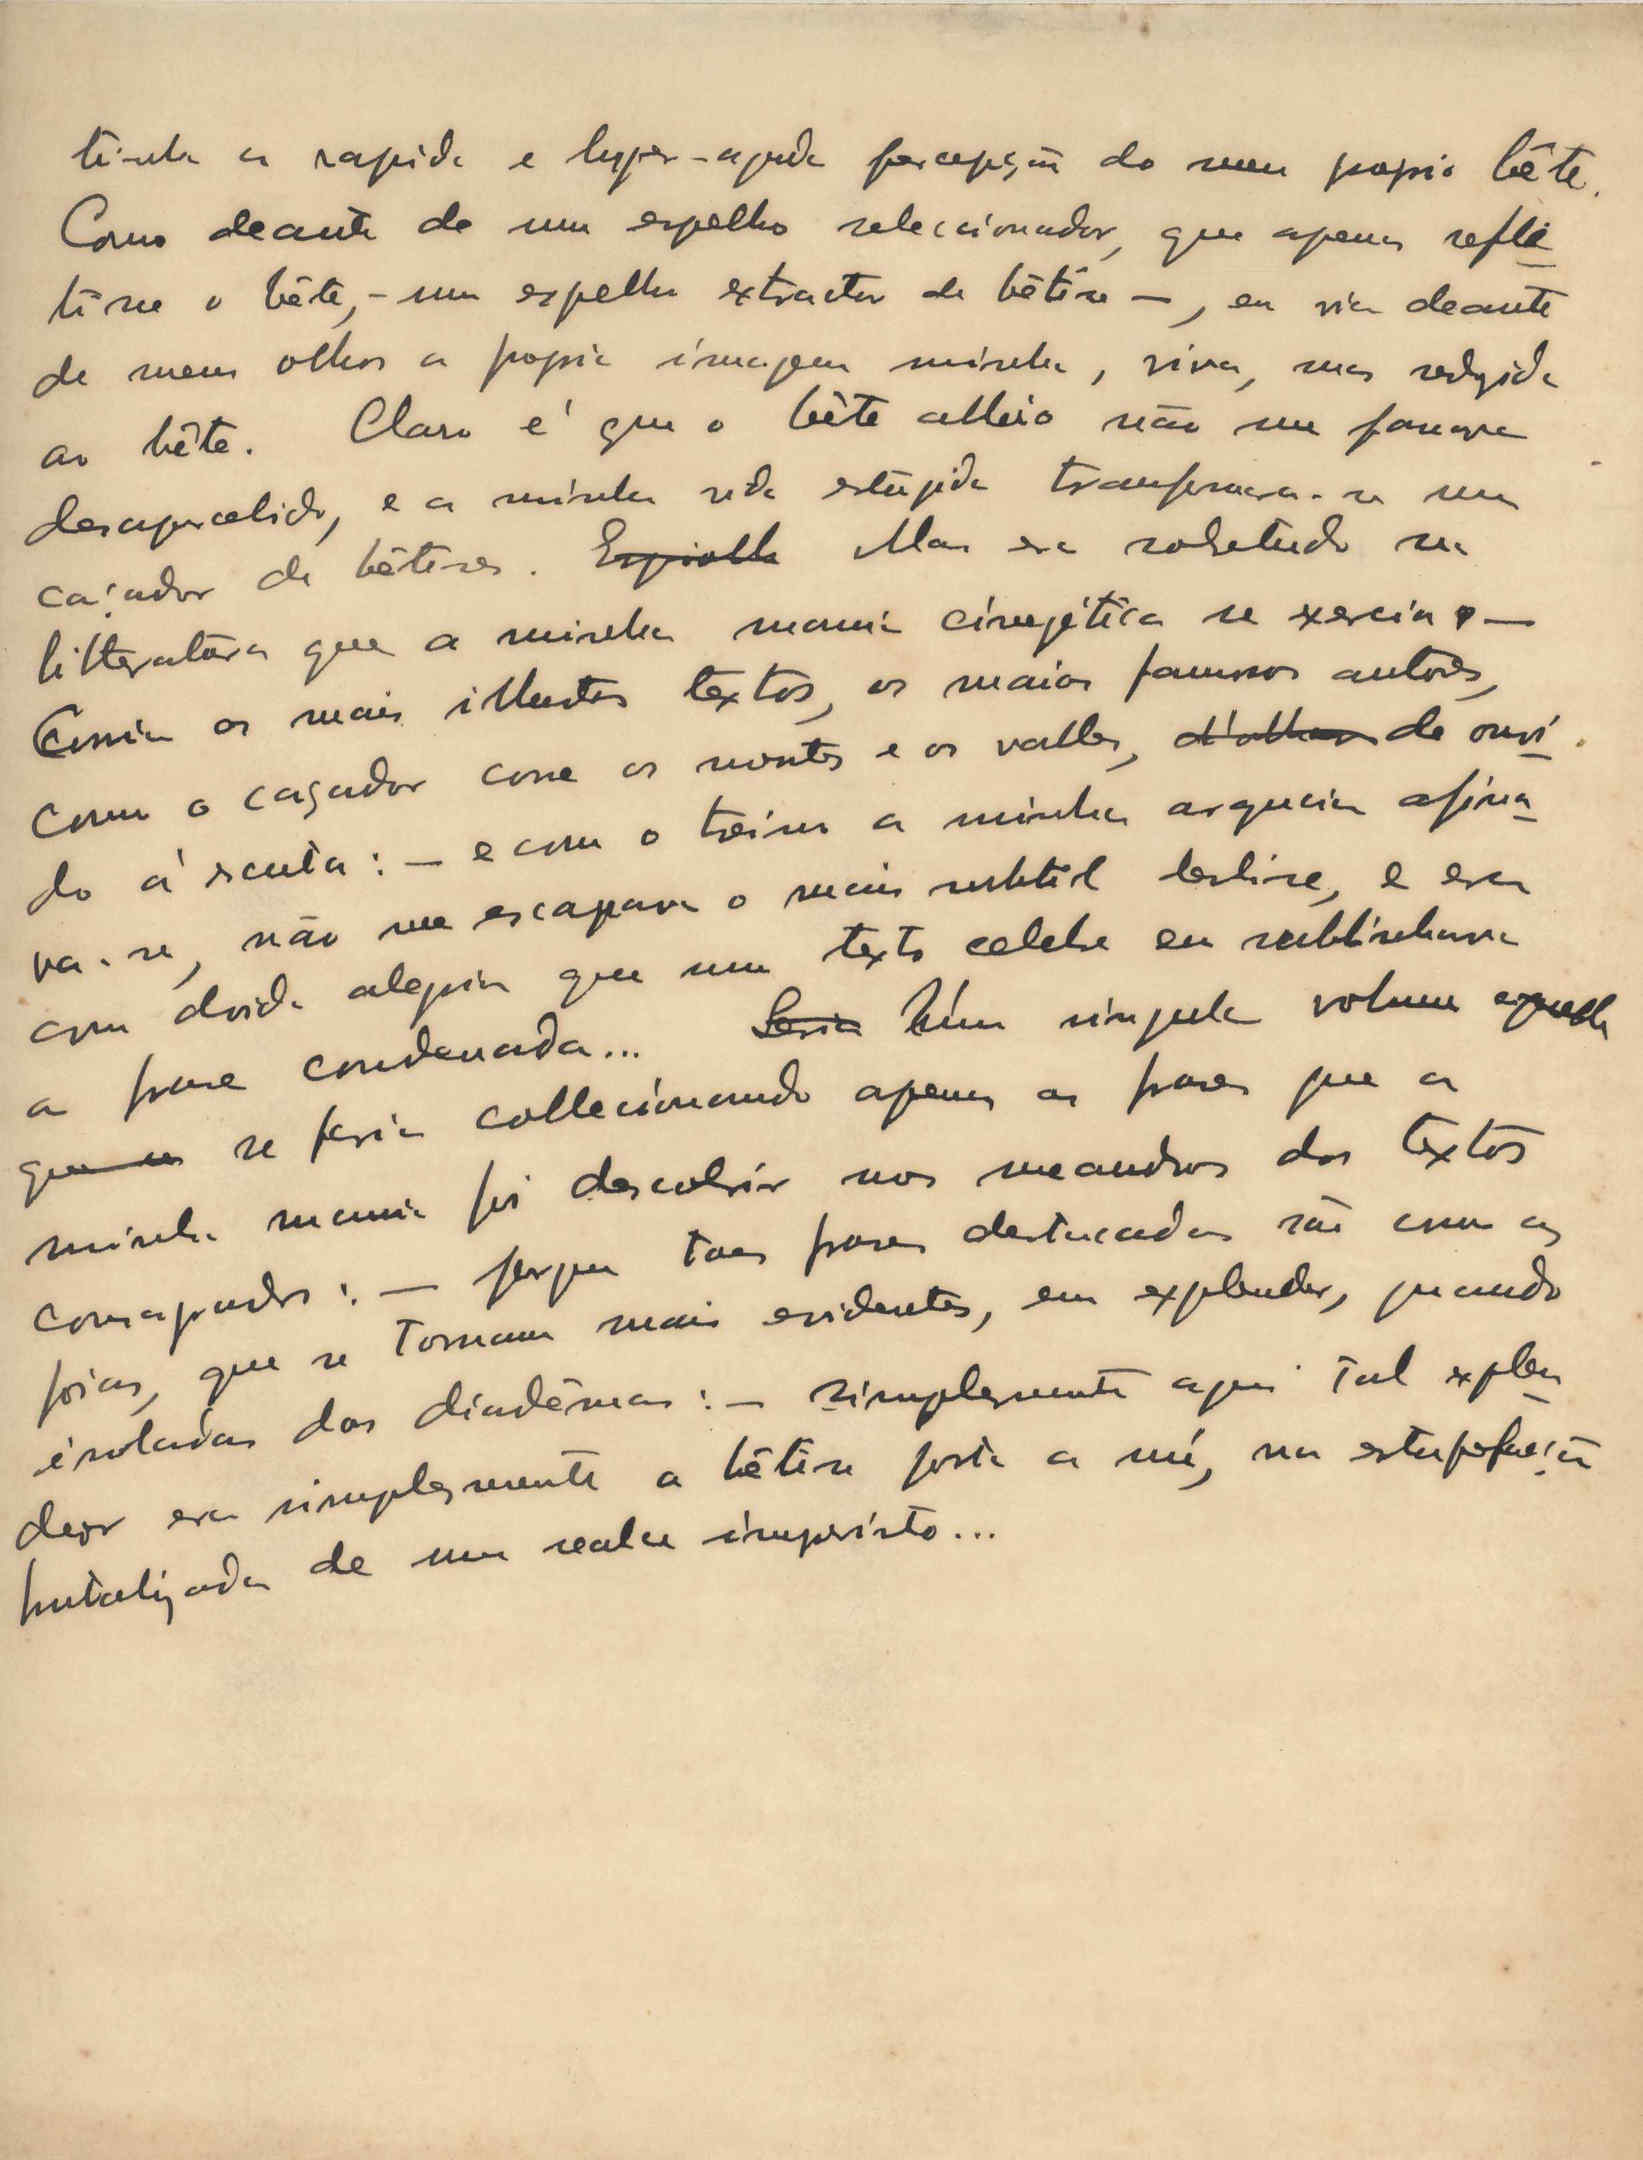 tinha a rapida e hyper-aguda percepção do meu proprio bête.
Como deante de um espelho seleccionador, que apenas refle
tisse o bête, - um espelho extractor de bêtise -, eu via deante
de meus olhos a propria imagem minha, viva, mas redusida
ao bête. Claro é que o bête alheio não me passava
desapercebido, e a minha vida estupida transformara-se num
caçador de bêtises. Espiolha Mas era sobretudo na
litteratura que a minha mania cinegética se exercia —
Corria os mais illustres textos, os maiores famosos autores,
como o caçador corre os montes e os valles, d'olhar de ouvi
do á escuta: — e com o treino a minha argucia afina
va-se, não me escapava o mais subtil bestise, e era
com doida alegria que num texto celebre eu sublinhava
a frase condenada... Seria Um singular volume aquelle
que se se faria collecionando apenas as frases que a
minha mania foi descobrir nos meandros dos textos
consagrados: — porque taes frases destacadas são como as
joias, que se tornam mais evidentes, em explendor, quando
isoladas dos diadêmas: — simplesmente aqui tal explen
dor era simplesmente a bêtise posta a nú, na estupefacção
brutalizada de um realce imprevisto...